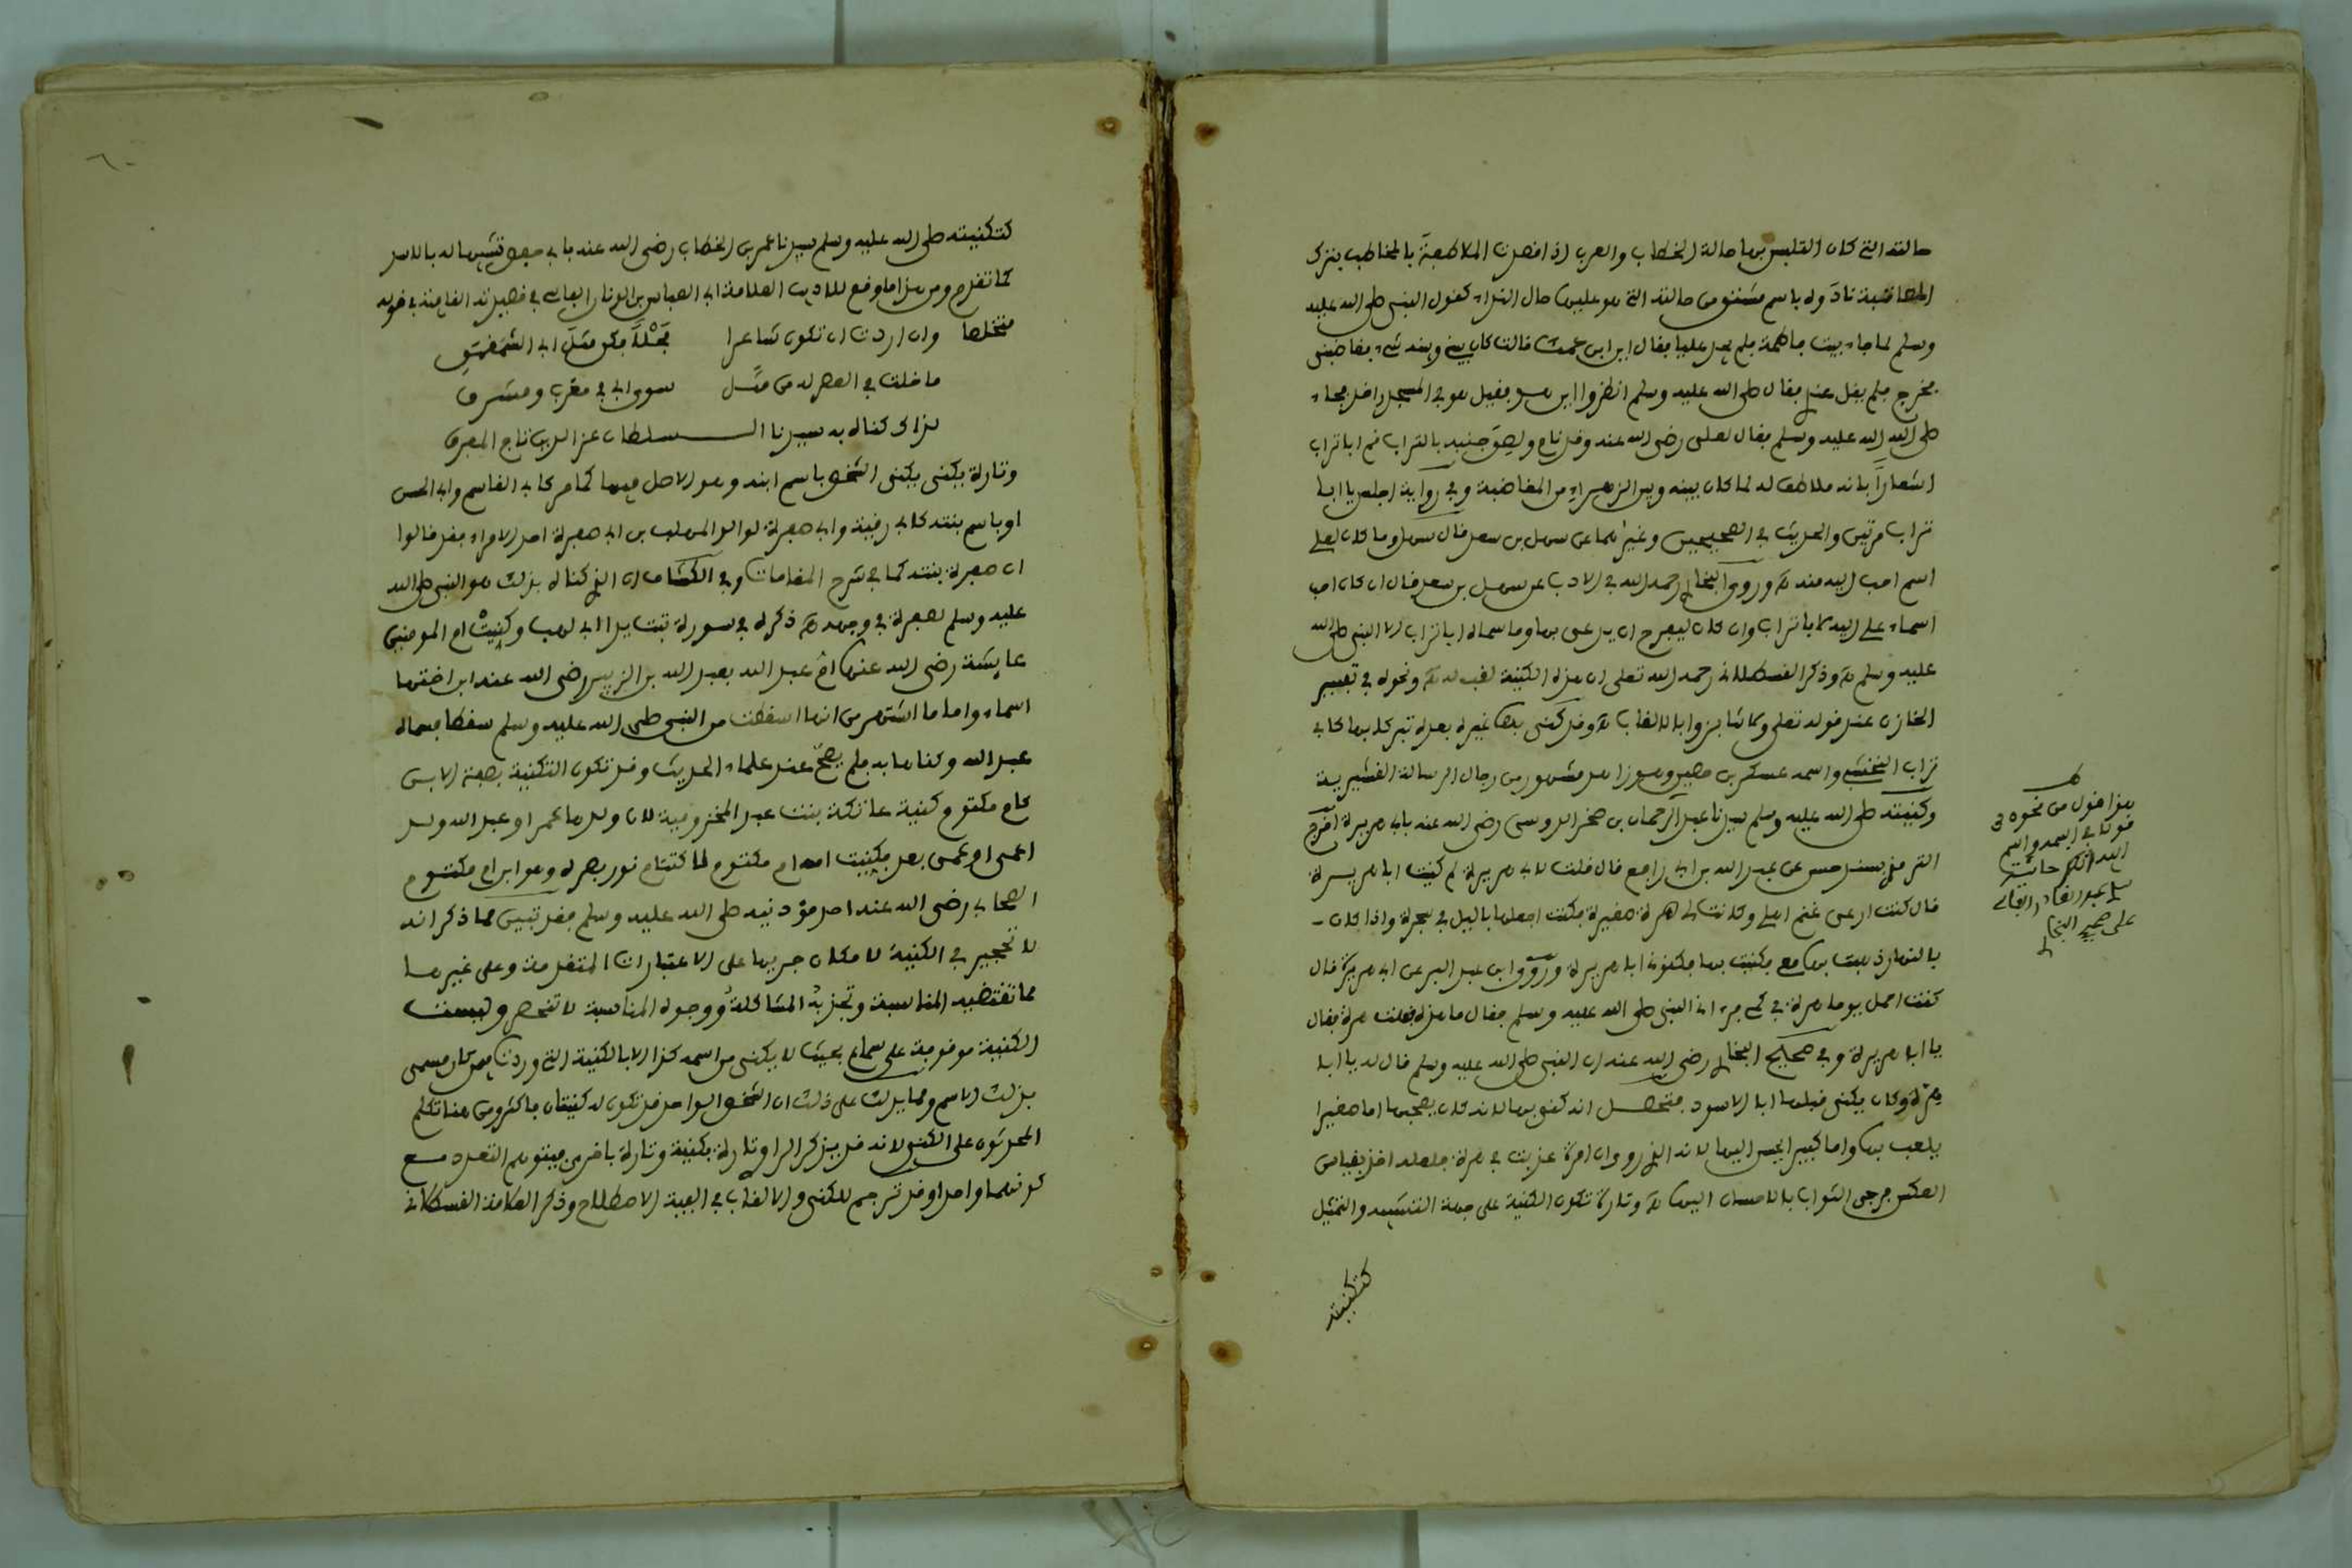 حالته التي كان التلبس بها حالة الخطاب والعرب اذا قصدت الملاطفة بالمخاطب بترك
المعاتبة نادوه باسم مشتق من حالته التي هو عليها حال النداء كقول النبي صلى الله عليه
وسلم لما جاء بيت فاطمة فلم يجد عليا فقال اين ابن عمك قالت كان بيني وبينه شيء فغاضبني
فخرج فلم يقل عندي فقال صلى الله عليه وسلم انظروا اين هو فقيل هو في المسجد راقد فجاء
صلى الله عليه وسلم فقال لعلي رضي الله عنه وقد نام ولصق جنبه بالتراب قم ابا تراب
اشعارا بانه ملاطف له لما كان بينه وبين الزهراء من المغاضبة وفي رواية اجلس يا ابا
تراب مرتين والحديث في الصحيحين وغيرهما عن سهل بن سعد قال سهل وما كان لعلي
اسم احب اليه منه اﻫ وروى البخاري رحمه الله في الادب عن سهل بن سعد قال ان كان احب
اسماء علي اليه لابا تراب وان كان ليفرح ان يدعى بها وما سماه ابا تراب الا النبي صلى الله
عليه وسلم اﻫ وذكر القسطلاني رحمه الله تعلى ان هذه الكنية لقب له اﻫ ونحوه في تفسير
الخازن عند قوله تعلى ولا تنابزوا بالالقاب اﻫ وقد كني بها غيره بعده تبركا بها كابي
تراب النخشبي واسمه عسكر بن حصين وهو زاهد مشهور من رجال الرسالة القشيرية
وكنيته صلى الله عليه وسلم سيدنا عبد الرحمان بن صخر الدوسي رضي الله عنه بابي هريرة اخرج
الترمذي بسند حسن عن عبيد الله بن ابي رافع قال قلت لابي هريرة لم كنيت ابا هريرة
قال كنت ارعى غنم اهلي وكانت لي هرة صغيرة فكنت اجعلها باليل في شجرة واذا كان
بالنهار ذهبت بها معي فكنيت بها فكنوني ابا هريرة وروى ابن عبد البر عن ابي هريرة قال
كنت احمل يوما هرة في كمي فرءاني النبي صلى الله عليه وسلم فقال ما هذه فقلت هرة فقال
يا ابا هريرة وفي صحيح البخاري رضي الله عنه ان النبي صلى الله عليه وسلم قال له يا ابا
هر وكان يكنى قبلها ابا الاسود فتحصل انه كني بها لانه كان يصحبها اما صغيرا
يلعب بها واما كبيرا يحسن اليها لانه الذي روى ان امرأة عذبت في هرة فلعله اخذ بقياس
العكس فرجى الثواب بالاحسان اليها اﻫ وتارة تكون الكنية على جهة التشبيه والتمثيل
كتكنيته
هذا اقول من نحوه في
قولنا في اسمه واسم
ابيه انظر حاشية
سيدي عبد القادر الفاسي
على صحيح البخاري
٦٠
كتكنيته صلى الله عليه وسلم سيدنا عمر بن الخطاب رضي الله عنه بابي حفص تشبيها له بالاسد
كما تقدم ومن هذا ما وقع للاديب العلامة ابي العباس بن الونان الفاسي في قصيدته القافية في قوله
متخلصا وان اردت ان تكون شاعرا فحلا فكن مثل ابي الشمقمق
ما خلت في العصر له من مثل سوى ابي في مغرب ومشرق
لذاك كناه به سيدنا السلطان عز الدين تاج المفرق
وتارة يكنى الشخص باسم ابنه وهو الاصل فيها كما مر كابي القاسم وابي الحسن
او باسم بنته كابي رقية وابي صفرة لوالد المهلب بن ابي صفرة احد الامراء فقد قالوا
ان صفرة بنته كما في شرح المقامات وفي الكشاف ان الذي كناه بذلك هو النبي صلى الله
عليه وسلم لصفرة في وجهه اﻫ ذكره في سورة تبت يدا ابي لهب وكنيت ام المومنين
عايشة رضي الله عنها ام عبد الله بعبد الله بن الزبير رضي الله عنه ابن اختها
اسماء واما ما اشتهر من انها اسقطت من النبي صلى الله عليه وسلم سقطا فسماه
عبد الله وكناها به فلم يصح عند علماء الحديث وقد تكون التكنية بصفة الابن
كام مكتوم كنية عاتكة بنت عبد الله المخزومية لان ولدها عمرا او عبد الله ولد
اعمى او عمي بعد فكنيت امه ام مكتوم لاكتتام نور بصره وهو ابن ام مكتوم
الصحابي رضي الله عنه احد مؤذنيه صلى الله عليه وسلم فقد تبين مما ذكر انه
لا تحجير في الكنية لامكان جريها على الاعتبارات المتقدمة وعلى غيرها
مما تقتضيه المناسبة وتجذبه المشاكلة ووجوه المناسبة لا تنحصر وليست
الكنية موقوفة على سماع بحيث لا يكنى من اسمه كذا الا بالكنية التي وردت فيمن كان مسمى
بذلك الاسم ومما يدلك على ذلك ان الشخص الواحد قد تكون له كنيتان فاكثر ومن هنا تكلم
المحدثون على الكنى لانه قد يذكر الراوي تارة بكنية وتارة باخرى فيتوهم التعدد مع
كونهما واحدا وقد ترجم للكنى والالقاب في الفية الاصطلاح وذكر العلامة القسطلاني